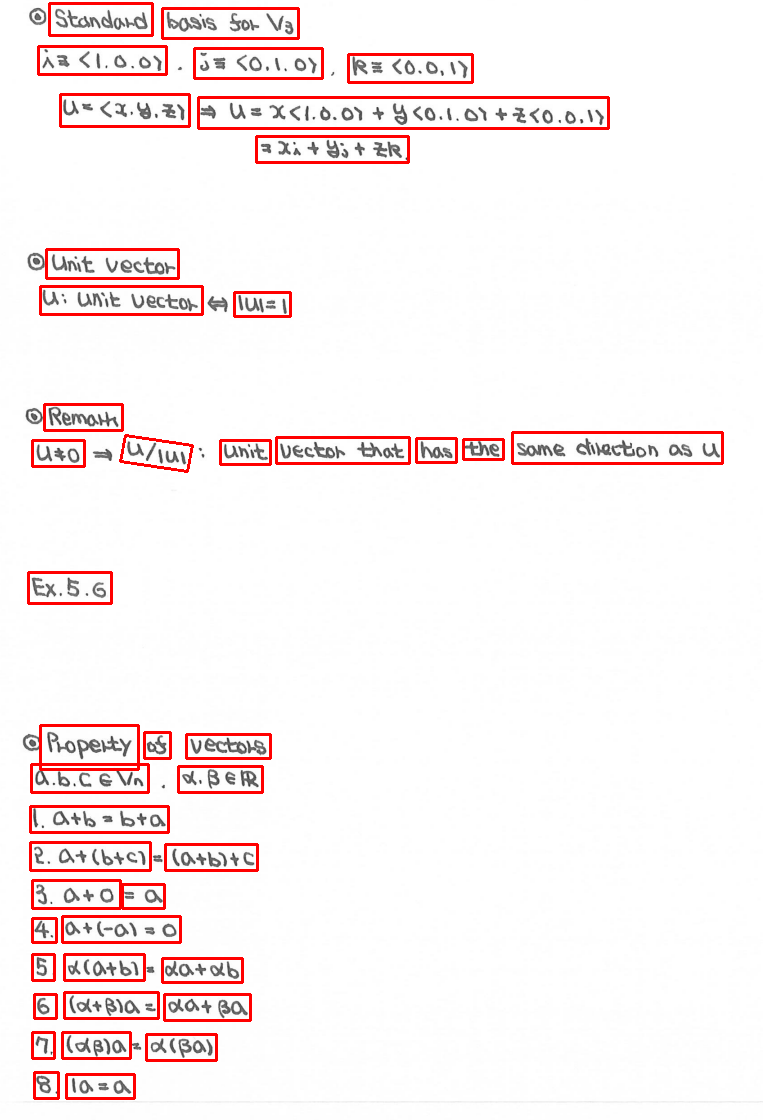 ⊙ Standard basis for V₃
i ≡ <1.0.0>, j ≡ <0.1.0>, k ≡ <0.0.1>
u = <x.y.z> ⇒ u = x<1.0.0> + y<0.1.0> + z<0.0.1>
= xi + yj + zk.
⊙ Unit vector
u : unit vector ⇔ |u| = 1
⊙ Remark
u ≠ 0 ⇒ u/|u| : unit vector that has the same direction as u
Ex. 5.6
⊙ Property of vectors
a.b.c ∈ Vn , α.β ∈ ℝ
1. a+b = b+a
2. a+(b+c) = (a+b)+c
3. a+0 = a
4. a+(-a) = 0
5 α(a+b) = αa+αb
6 (α+β)a = αa+βa
7. (αβ)a = α(βa)
8. 1a = a